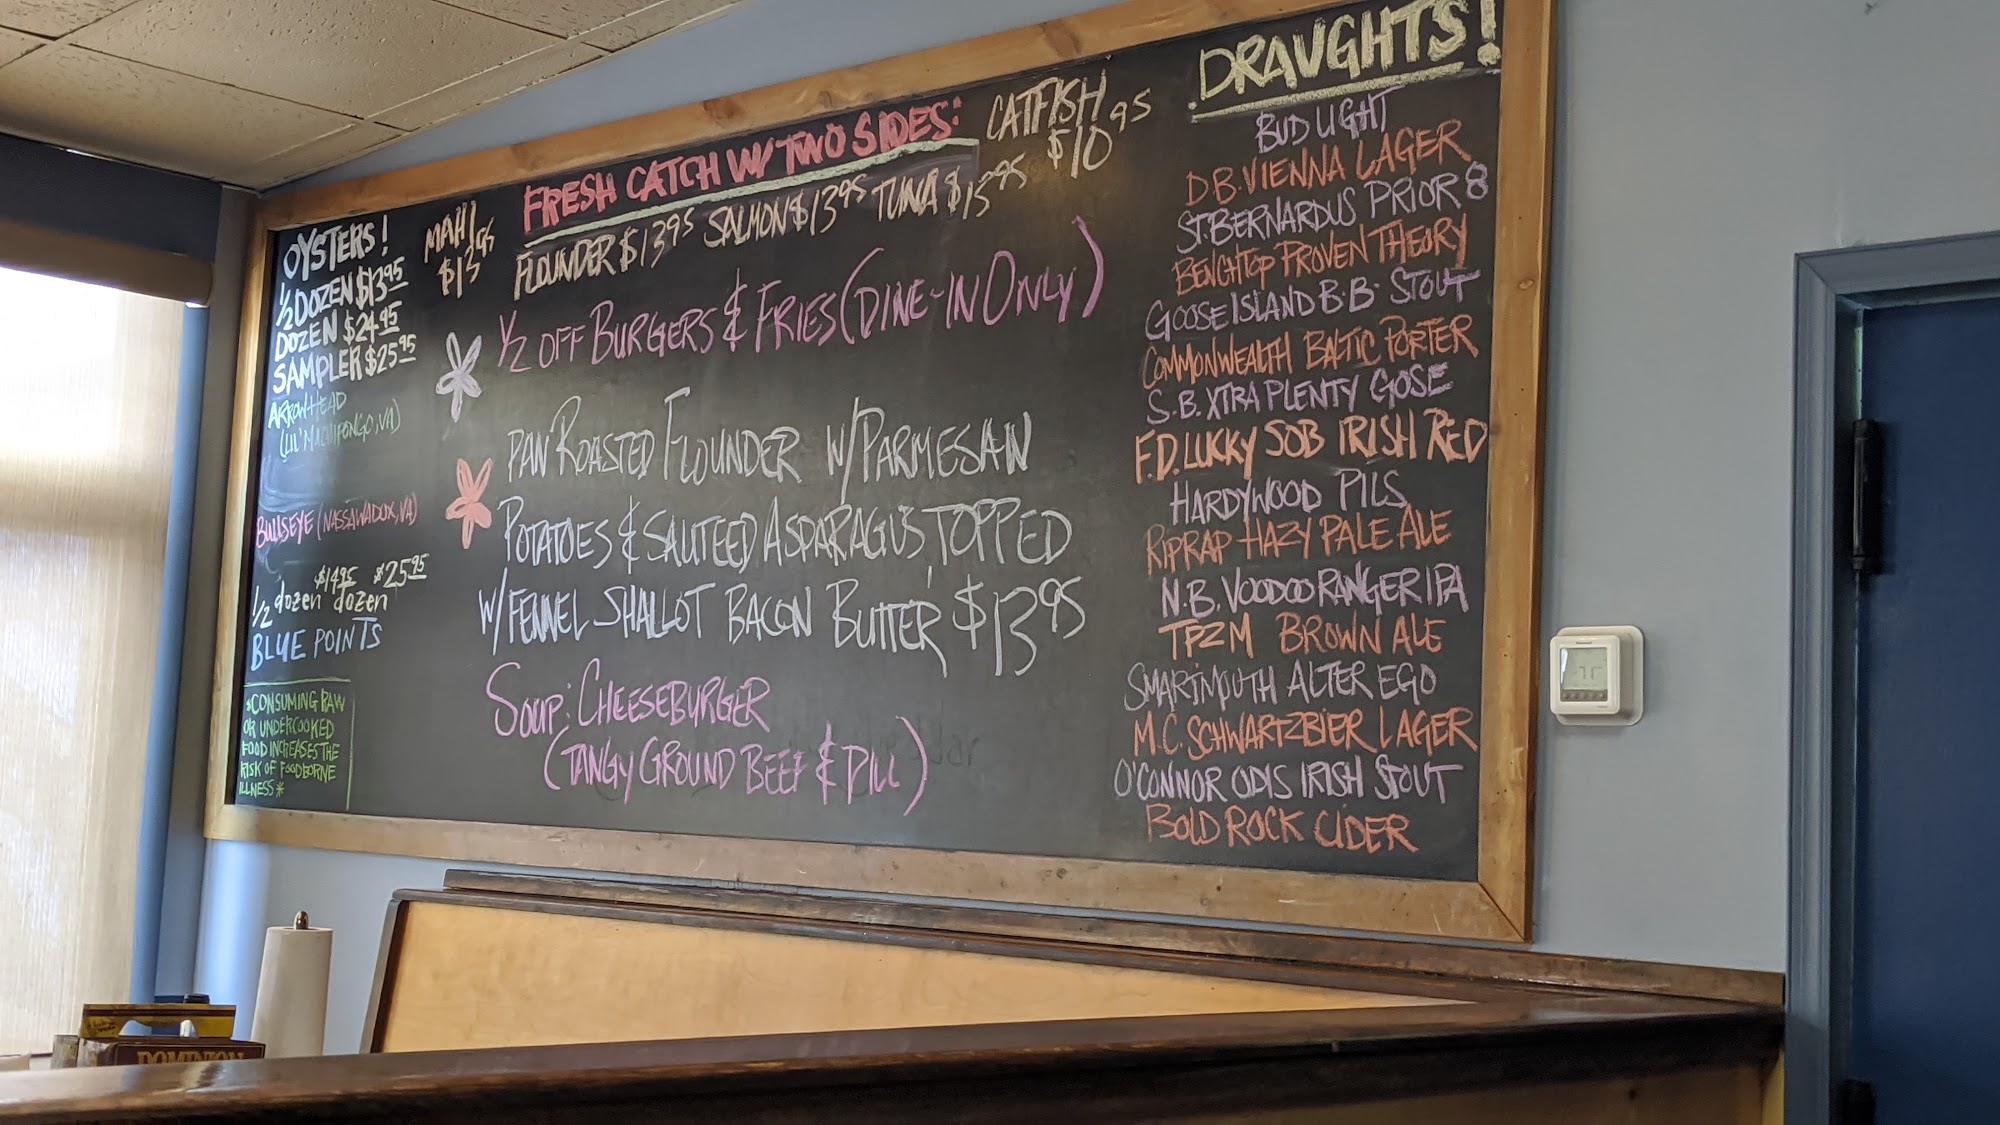 OYSTERS!
1/2 DOZEN $13.95
DOZEN $24.95
SAMPLER $25.95
ARROWHEAD
(LIL' MACHIPONGO, VA)
BULLSEYE (NASSAWADOX, VA)
$14.95 $25.95
1/2 dozen dozen
BLUE POINTS
*CONSUMING RAW
OR UNDERCOOKED
FOOD INCREASES THE
RISK OF FOODBORNE
ILLNESS*
MAHI
$13.95
FRESH CATCH W/ TWO SIDES:
CATFISH
$10.95
FLOUNDER $13.95 SALMON $13.95 TUNA $13.95
1/2 OFF BURGERS & FRIES (DINE-IN ONLY)
PAN ROASTED FLOUNDER W/ PARMESAN
POTATOES & SAUTEED ASPARAGUS, TOPPED
W/ FENNEL SHALLOT BACON BUTTER $13.95
SOUP: CHEESEBURGER
(TANGY GROUND BEEF & DILL)
DRAUGHTS!
BUD LIGHT
D.B. VIENNA LAGER
ST. BERNARDUS PRIOR 8
BENCHTOP PROVEN THEORY
GOOSE ISLAND B.B. STOUT
COMMONWEALTH BALTIC PORTER
S.B. XTRA PLENTY GOSE
F.D. LUCKY SOB IRISH RED
HARDYWOOD PILS
RIPRAP HAZY PALE ALE
N.B. VOODOO RANGER IPA
TPZM BROWN ALE
SMARTMOUTH ALTER EGO
M.C. SCHWARTZBIER LAGER
O'CONNOR ODIS IRISH STOUT
BOLD ROCK CIDER
DOMINION